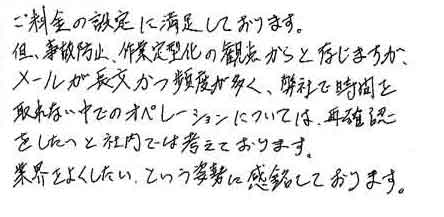 ご料金の設定に満足しております。
但、事故防止、作業定型化の観点からと存じますが、
メールが長文かつ頻度が多く、弊社で時間を
取れない中でのオペレーションについては、再確認
をしたいと社内では考えております。
業界をよくしたい、という姿勢に感銘しております。